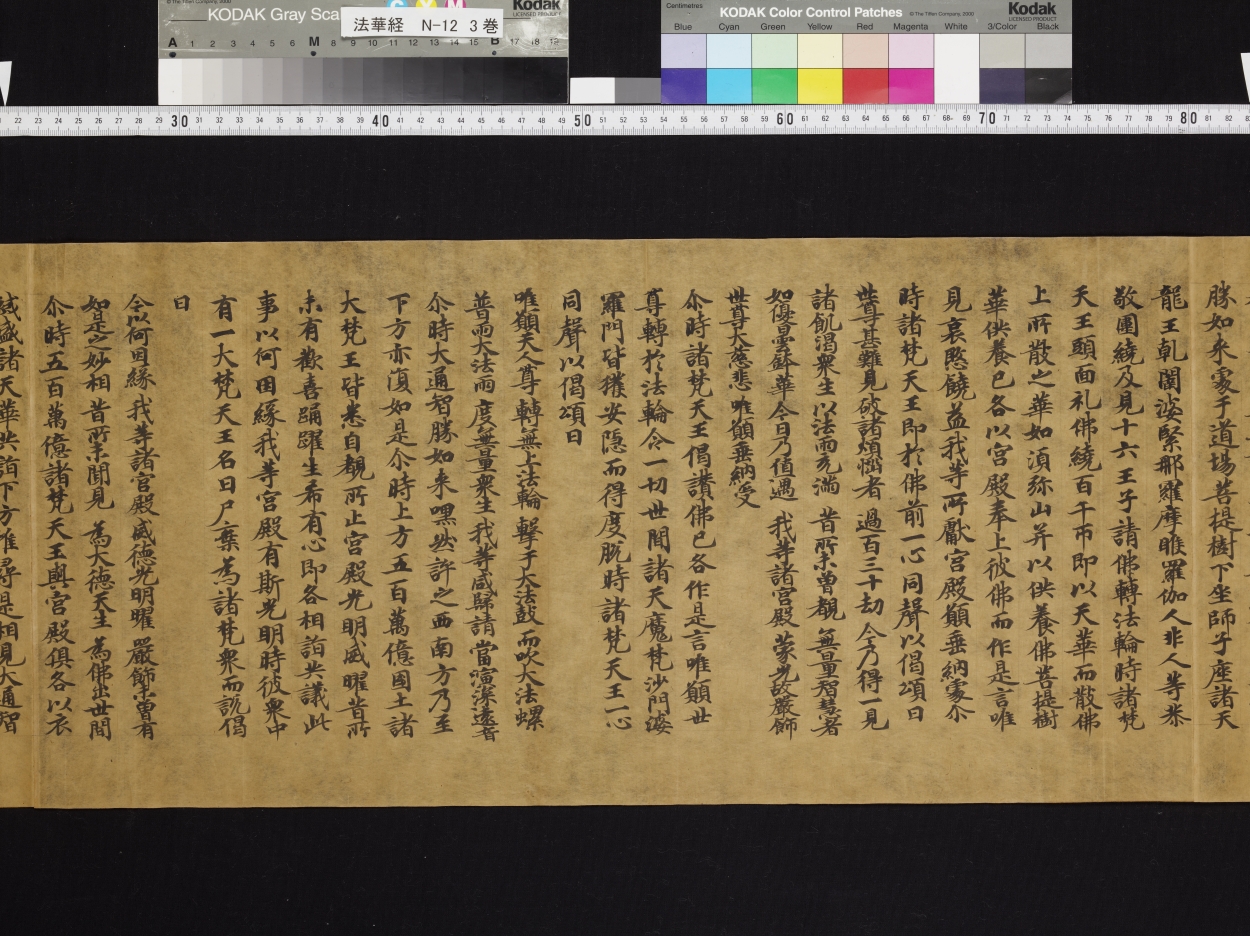 KODAK Gray Scale
法華経 N-12 3巻
Kodak
LICENSED PRODUCT
A 1 2 3 4 5 6 M 8 9 10 11 12 13 14 15 B 17 18 19
Centimetres
KODAK Color Control Patches
© The Tiffen Company, 2000
Kodak
LICENSED PRODUCT
Blue Cyan Green Yellow Red Magenta White 3/Color Black
勝如来処于道場菩提樹下坐師子座諸天
龍王乹闥婆緊那羅摩睺羅伽人非人等恭
敬圍繞及見十六王子請佛轉法輪時諸梵
天王頭面礼佛繞百千帀即以天華而散佛
上所散之華如湏弥山并以供養佛菩提樹
華供養已各以宮殿奉上彼佛而作是言唯
見哀愍饒益我等所獻宮殿願垂納處尒
時諸梵天王即於佛前一心同聲以偈頌曰
世尊甚難見 破諸煩惱者 過百三十劫 今乃得一見
諸飢渇衆生 以法雨充滿 昔所未曽覩 無量智慧者
如優曇鉢華 今日乃値遇 我等諸宮殿 蒙光故嚴飾
世尊大慈悲 唯願垂納受
尒時諸梵天王偈讃佛已各作是言唯願世
尊轉於法輪令一切世間諸天魔梵沙門婆
羅門皆獲安隠而得度脱時諸梵天王一心
同聲以偈頌曰
唯願天人尊 轉無上法輪 擊于大法鼓 而吹大法螺
普雨大法雨 度無量衆生 我等咸歸請 當演深遠音
尒時大通智勝如来嘿然許之西南方乃至
下方亦復如是尒時上方五百萬億國土諸
大梵王皆悉自覩所止宮殿光明威曜昔所
未有歡喜踊躍生希有心即各相詣共議此
事以何因緣我等宮殿有斯光明時彼衆中
有一大梵天王名曰尸棄為諸梵衆而説偈
曰
今以何因緣 我等諸宮殿 威德光明曜 嚴飾未曽有
如是之妙相 昔所未聞見 為大德天生 為佛出世間
尒時五百萬億諸梵天王與宮殿俱各以衣
祴盛諸天華共詣下方推尋是相見大通智